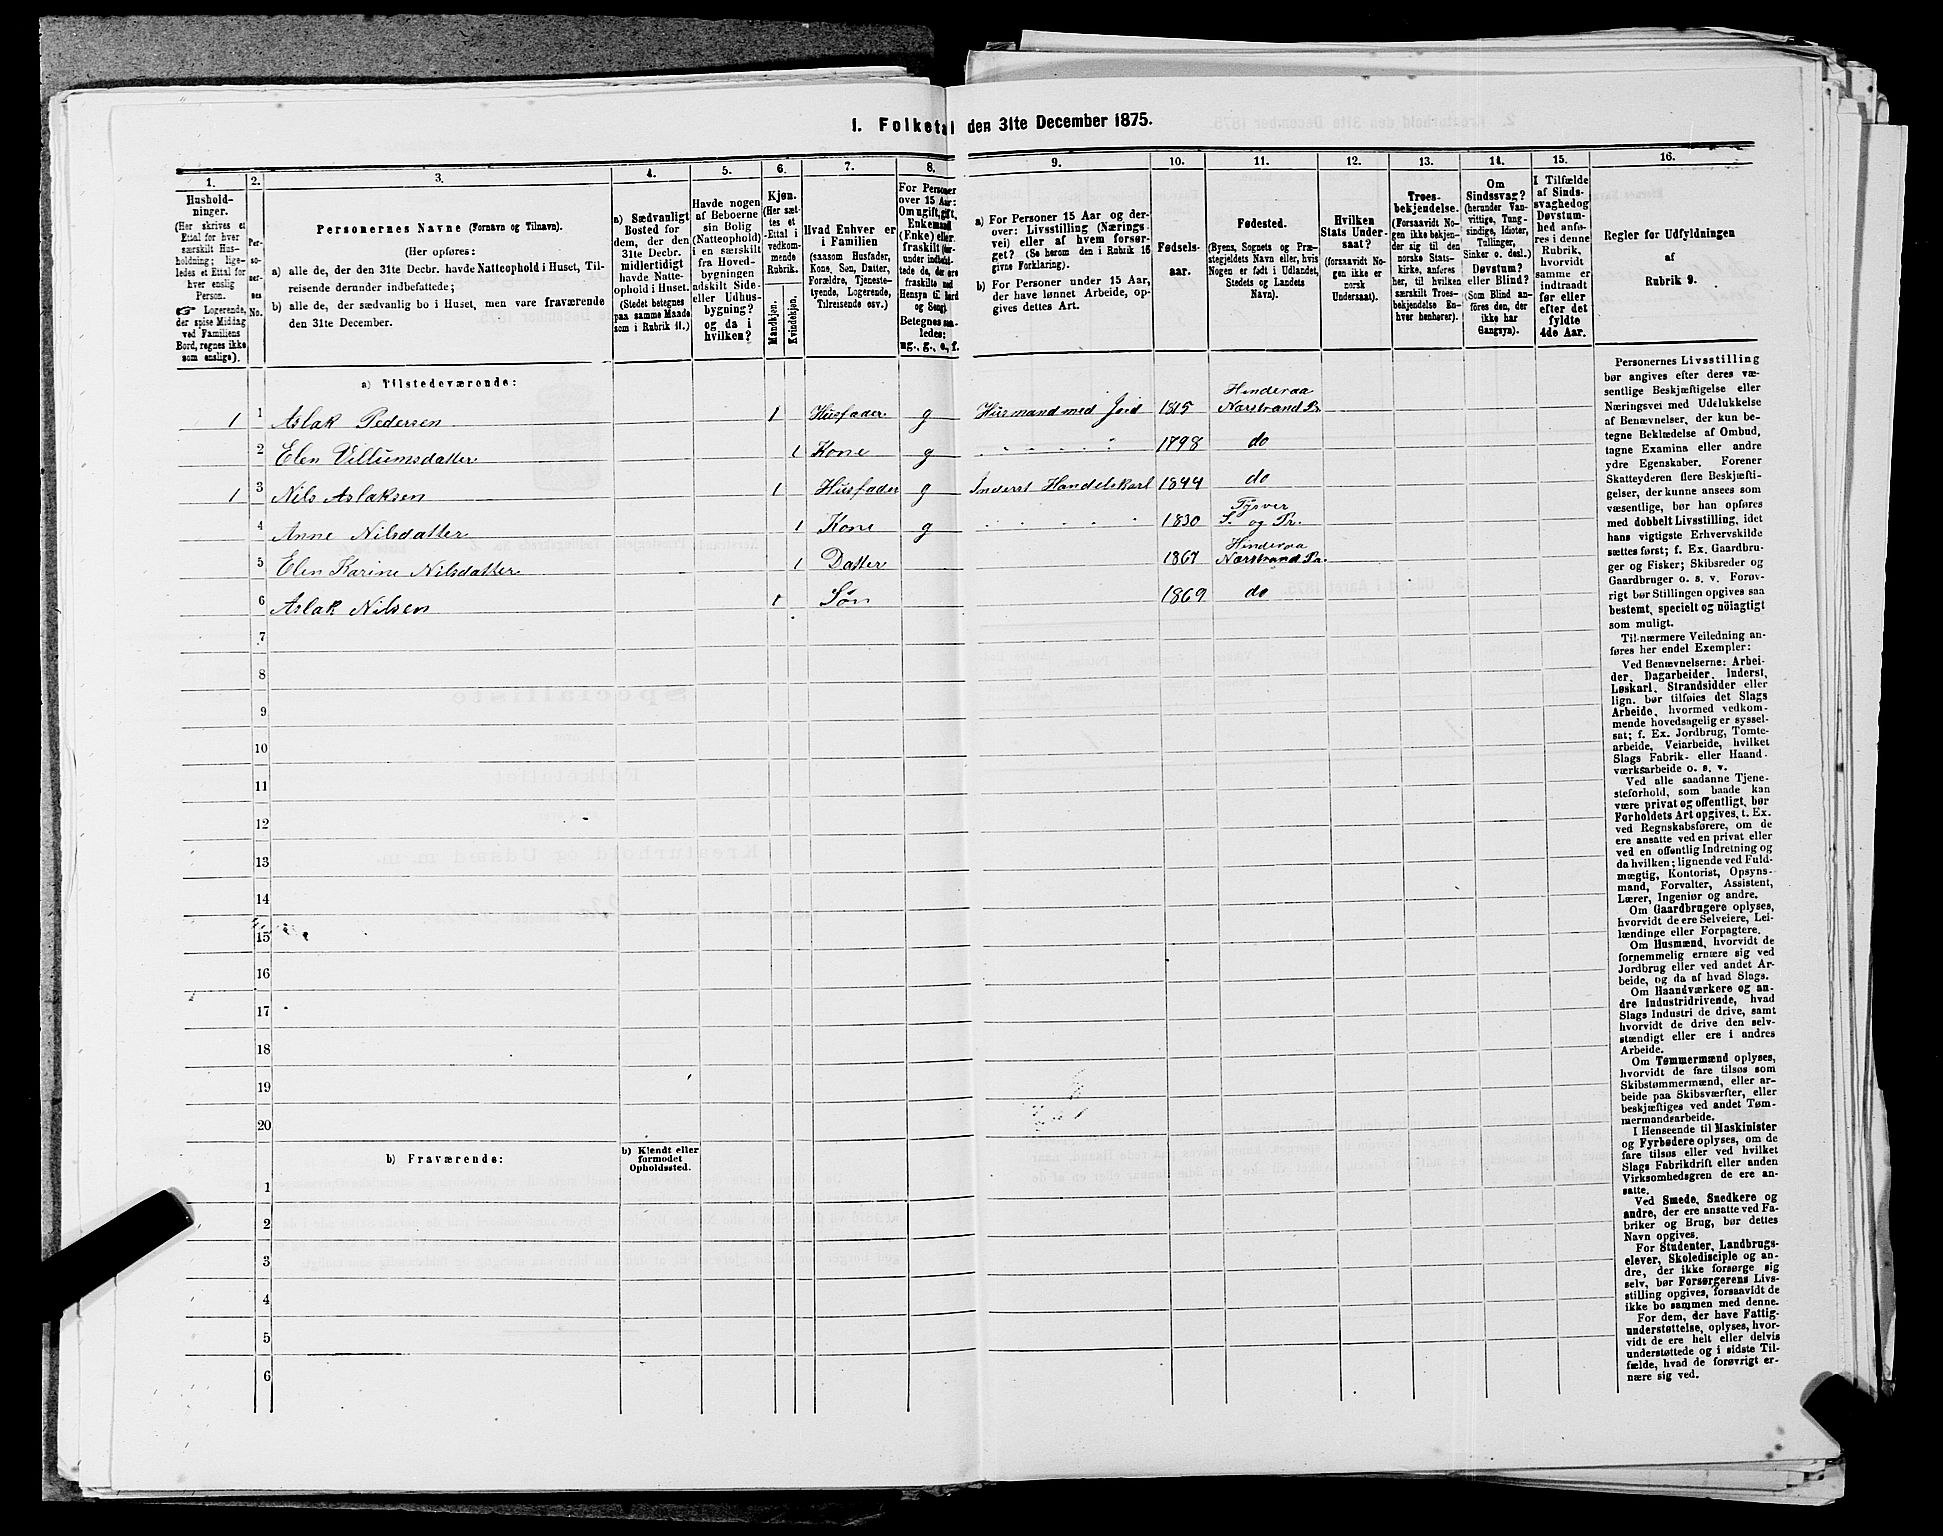 1. Folketal den 31te December 1875.
1. 2. 3. 4. 5. 6. 7. 8. 9. 10. 11. 12. 13. 14. 15. 16.
Hushold-
ninger.
(Her skrives et
Ettal for hver
særskilt Hus-
holdning; lige-
ledes et Ettal for
hver enslig
Person.
☞ Logerende,
der spise Middag
ved Familiens
Bord, regnes ikke
som enslige).
Per-
so-
ner-
nes
No.
Personernes Navne (Fornavn og Tilnavn).
(Her opføres:
a) alle de, der den 31te Decbr. havde Natteophold i Huset, Til-
reisende derunder indbefattede;
b) alle de, der sædvanlig bo i Huset, men vare fraværende
den 31te December.
a) Sædvanligt
Bosted for
dem, der den
31te Decbr.
midlertidigt
havde Natte-
ophold i Huset.
(Stedet betegnes
paa samme Maade
som i Rubrik 11.)
Havde nogen
af Beboerne
sin Bolig
(Natteophold)
i en særskilt
fra Hoved-
bygningen
adskilt Side-
eller Udhus-
bygning?
og da i
hvilken?
Kjøn.
(Her sæt-
tes et
Ettal i
vedkom-
mende
Rubrik.)
Mandkjøn.
Kvindekjøn.
Hvad Enhver er
i Familien
(saasom Husfader,
Kone, Søn, Datter,
Forældre, Tjeneste-
tyende, Logerende,
Tilreisende osv.)
For Personer
over 15 Aar:
Om ugift, gift,
Enkemand
(Enke) eller
fraskilt (her-
under indbefat-
tede de, der ere
fraskilte med
Hensyn til Bord
og Seng).
Betegnes saa-
ledes:
ug., g., e., f.
a) For Personer 15 Aar og der-
over: Livsstilling (Nærings-
vei) eller af hvem forsør-
get? (Se herom den i Rubrik 16
givne Forklaring).
b) For Personer under 15 Aar,
der have lønnet Arbeide, op-
gives dettes Art.
Fødsels-
aar.
Fødested.
(Byens, Sognets og Præ-
stegjeldets Navn eller, hvis
Nogen er født i Udlandet,
Stedets og Landets
Navn).
Hvilken
Stats Under-
saat?
(forsaavidt No-
gen ikke er
norsk
Undersaat).
Troes-
bekjendelse.
(Forsaavidt No-
gen ikke bekjen-
der sig til den
norske Stats-
kirke, anføres
her til hvilken
særskilt Troes-
bekjendelse En-
hver henhører).
Om
Sindssvag?
(herunder Van-
vittige, Tung-
sindige, Idioter,
Tullinger,
Sinker o. desl.).
Døvstum?
eller Blind?
(Som Blind an-
føres den, der
ikke har
Gangsyn).
I Tilfælde
af Sinds-
svaghed og
Døvstum-
hed anfø-
res i denne
Rubrik,
hvorvidt
samme er
indtraadt
før eller
efter det
fyldte
4de Aar.
Regler for Udfyldningen
af
Rubrik 9.
a) Tilstedeværende:
1 1 Aslak Pedersen 1 Husfader g Husmand med Jord 1815 Hinderaa Nærstrand Pr.
2 Elen Villumsdatter 1 Kone g " " " " 1798 do
1 3 Nils Aslaksen 1 Husfader g Inderst Handelskarl 1844 do
4 Anne Nilsdatter 1 Kone g " " " " 1830 Tysver S. og Pr.
5 Elen Karine Nilsdatter 1 Datter 1867 Hinderaa Nærstrand Pr.
6 Aslak Nilsen 1 Søn 1869 do
7
8
9
10
11
12
13
14
15
16
17
18
19
20
b) Fraværende:
b) Kjendt eller
formodet
Opholdssted.
1
2
3
4
5
6
Personernes Livsstilling
bør angives efter deres væ-
sentlige Beskjæftigelse eller
Næringsvei med Udelukkelse
af Benævnelser, der kun be-
tegne Beklædelse af Ombud,
tagne Examina eller andre
ydre Egenskaber. Forener
Skatteyderen flere Beskjæfti-
gelser, der kunne ansees som
væsentlige, bør han opføres
med dobbelt Livsstilling, idet
hans vigtigste Erhvervskilde
sættes først; f. Ex. Gaardbru-
ger og Fisker; Skibsreder og
Gaardbruger o. s. v. Forøv-
rigt bør Stillingen opgives saa
bestemt, specielt og nöiagtigt
som muligt.
Til nærmere Veiledning an-
føres her endel Exempler:
Ved Benævnelserne: Arbei-
der, Dagarbeider, Inderst,
Løskarl, Strandsidder eller
lign. bør tilføies det Slags
Arbeide, hvormed vedkom-
mende hovedsagelig er syssel-
sat; f. Ex. Jordbrug, Tomte-
arbeide, Veiarbeide, hvilket
Slags Fabrik- eller Haand-
værksarbeide o. s. v.
Ved alle saadanne Tjene-
steforhold, som baade kan
være privat og offentligt, bør
Forholdets Art opgives, t. Ex.
ved Regnskabsførere, om de
ere ansatte ved en privat eller
ved en offentlig Indretning og
da hvilken; lignende ved Fuld-
mægtig, Kontorist, Opsyns-
mand, Forvalter, Assistent,
Lærer, Ingeniør og andre.
Om Gaardbrugere oplyses,
hvorvidt de ere Selveiere, Lei-
lændinge eller Forpagtere.
Om Husmænd, hvorvidt de
fornemmelig ernære sig ved
Jordbrug eller ved andet Ar-
beide, og da af hvad Slags.
Om Haandværkere og an-
dre Industridrivende, hvad
Slags Industri de drive, samt
hvorvidt de drive den selv-
stændigt eller ere i andres
Arbeide.
Om Tømmermænd oplyses,
hvorvidt de fare tilsøs som
Skibstømmermænd, eller ar-
beide paa Skibsværfter, eller
beskjæftiges ved andet Tøm-
mermandsarbeide.
I Henseende til Maskinister
og Fyrbødere oplyses, om de
fare tilsøs eller ved hvilket
Slags Fabrikdrift eller anden
Virksomhedsgren de ere an-
satte.
Ved Smede, Snedkere og
andre, der ere ansatte ved Fa-
briker og Brug, bør dettes
Navn opgives.
For Studenter, Landbrugs-
elever, Skoledisciple og an-
dre, der ikke forsørge sig
selv, bør Forsørgerens Livs-
stilling opgives, forsaavidt de
ikke bo sammen med denne.
For dem, der have Fattig-
understøttelse, oplyses, hvor-
vidt de ere helt eller delvis
understøttede og i sidste Til-
fælde, hvad de forøvrigt er-
nære sig ved.